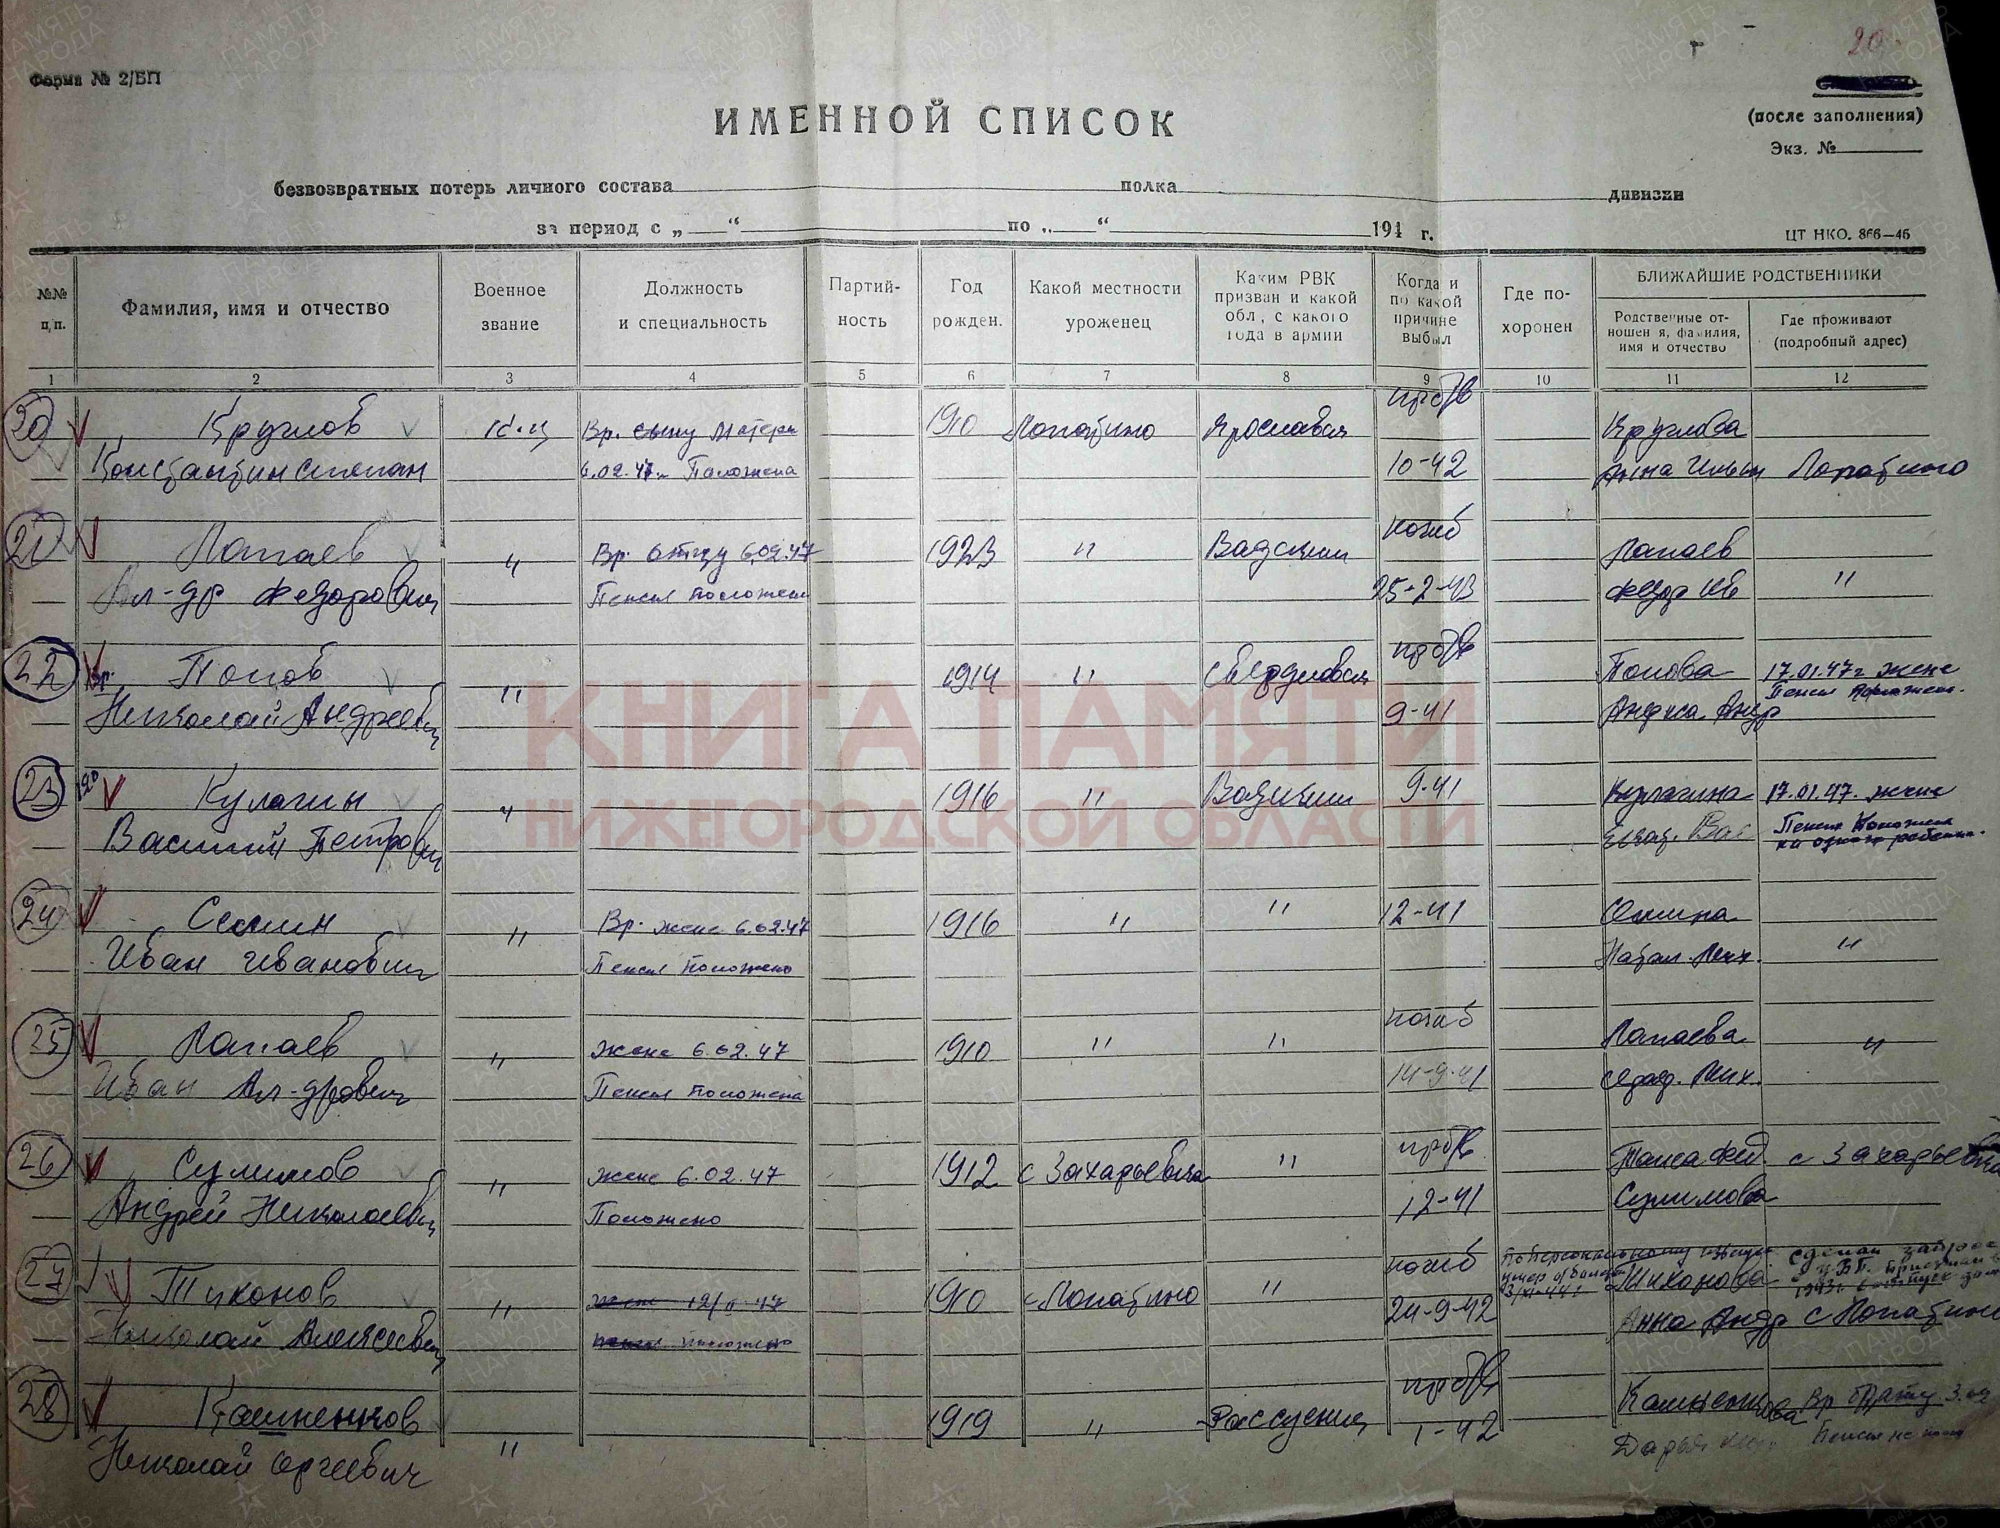 20
Форма № 2/БП
ИМЕННОЙ СПИСОК
(после заполнения)
Экз. №
безвозвратных потерь личного состава полка дивизии
за период с „ “ по „ “ 194 г.
ЦТ НКО. 866—46
№№ п/п.
Фамилия, имя и отчество
Военное звание
Должность и специальность
Партий- ность
Год рожден.
Какой местности уроженец
Каким РВК призван и какой обл., с какого года в армии
Когда и по какой причине выбыл
Где по- хоронен
БЛИЖАЙШИЕ РОДСТВЕННИКИ
Родственные от- ношения, фамилия, имя и отчество
Где проживают (подробный адрес)
1 2 3 4 5 6 7 8 9 10 11 12
20 Круглов к-ц Вр. сыну Матери 1910 Лопатино Ярославск проб/в Круглова
Константин Степан 6.02.47г Положена 10-42 Анна Ильин Лопатино
21 Лапаев " Вр. отцу 6.02.47 1923 " Вадским погиб Лапаев
Ал-др Федорович Пенсия положена 25-2-43 Федор Ив "
22 Вр. Попов " 1914 " Свердловск проб/в Попова 17.01.47г жене
Николай Андреевич 9-41 Андр Пенсия положен.
23 Кулагин " 1916 " Вадским 9-41 Кулагина 17.01.47. жене
Василий Петрович Вас Пенсия положена
на одного ребенка.
24 Семин " Вр. жене 6.02.47 1916 " " 12-41 Семина
Иван Иванович Пенсия положено Натал. Мих. "
25 Лапаев " жене 6.02.47 1910 " " погиб Лапаева "
Иван Ал-дрович Пенсия положена 14-9-41 Мих.
26 Сулимов " жене 6.02.47 1912 с Захарьевка " проб/в Фед. с Захарьевка
Андрей Николаевич Положено 12-41 Сулимова
27 Тихонов " жене 12/II-47 1910 с Лопатино " погиб По персональному Тихонова сделан запрос
Николай Алексеевич пенсия положено 24-9-42 Анна Андр с Лопатино
28 Камненков " 1919 " проб/в Камненкова Вр брату 3.02
Николай Сергеевич 1-42 Дарья Пенсия не
КНИГА ПАМЯТИ
НИЖЕГОРОДСКОЙ ОБЛАСТИ
ПАМЯТЬ НАРОДА